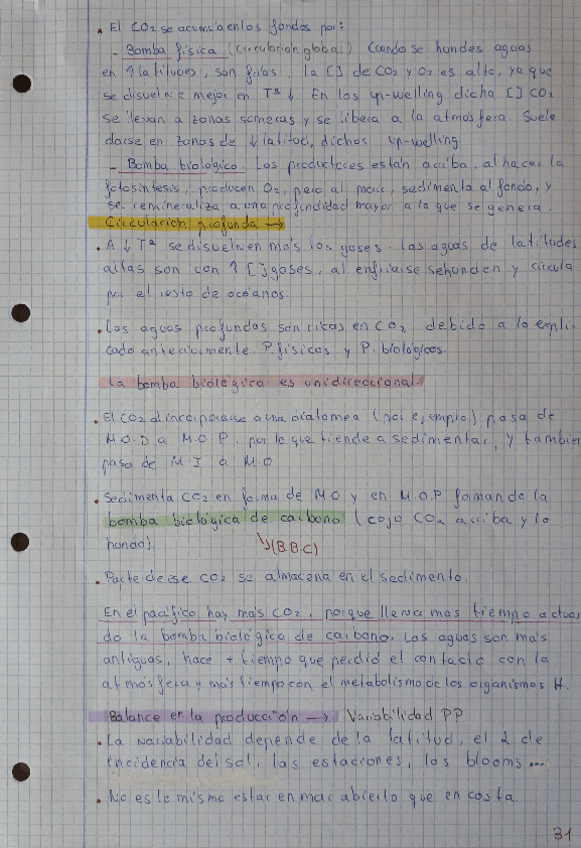 • El CO2 se acumula en los fondos por:
- Bomba física (circulación global) Cuando se hundes aguas
en ↑latitudes, son frías, la [] de CO2 y O2 es alta, ya que
se disuelve mejor en Tª ↓. En los up-welling dicha [] CO2
se llevan a zonas someras y se libera a la atmósfera. Suele
darse en zonas de ↓ latitud, dichos up-welling.
- Bomba biológica. Los productores están arriba, al hacer la
fotosíntesis, producen O2, pero al morir, sedimenta al fondo, y
se remineraliza a una profundidad mayor a la que se genera.
Circulación profunda →
• A ↓ Tª se disuelven más los gases. Las aguas de latitudes
altas son con ↑ [] gases, al enfriarse se hunden y circula
por el resto de océanos.
• Las aguas profundas son ricas en CO2 debido a lo expli
cado anteriormente. P. físicos y P. biológicos.
La bomba biológica es unidireccional.
• El CO2 al incorporarse a una diatomea (por ejemplo) pasa de
M.O.D a M.O.P, por lo que tiende a sedimentar, y también
pasa de M.I a M.O
• Sedimenta CO2 en forma de MO y en M.O.P formando la
bomba biológica de carbono (cojo CO2 arriba y lo
hundo).
↘(B.B.C)
• Parte de ese CO2 se almacena en el sedimento.
En el pacífico hay más CO2, porque lleva mas tiempo actuan
do la bomba biológica de carbono. Las aguas son más
antiguas, hace + tiempo que perdió el contacto con la
atmósfera y más tiempo con el metabolismo de los organismos H.
Balance en la producción → Variabilidad PP
• La variabilidad depende de la latitud, el ∠ de
incidencia del sol, las estaciones, los blooms...
• No es lo mismo estar en mar abierto que en costa.
31